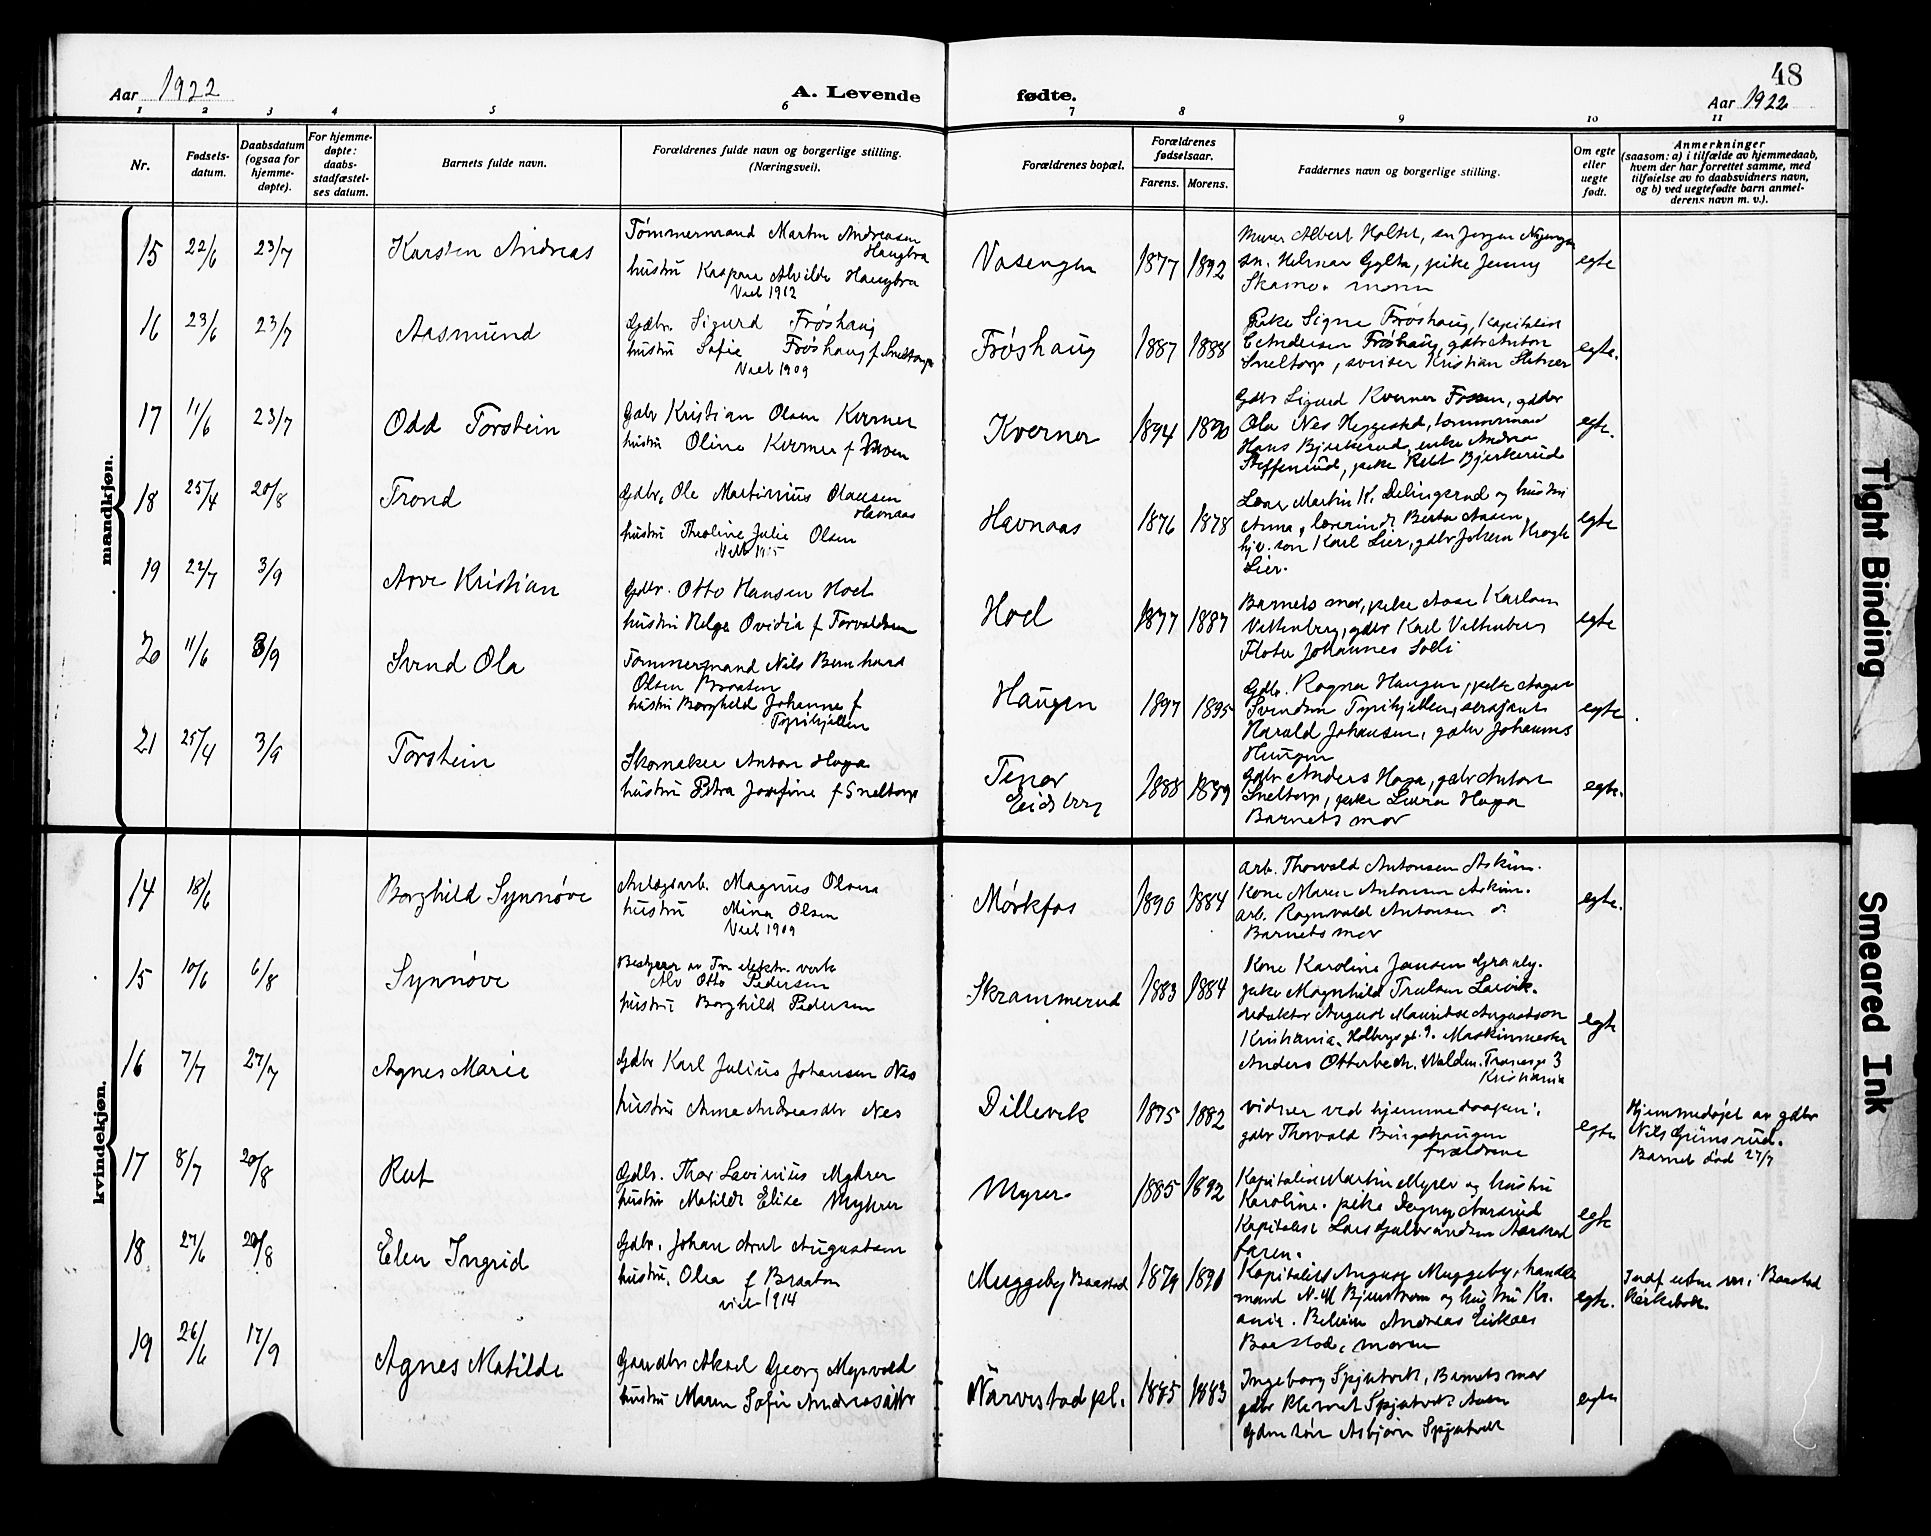 48
Aar 1922
A. Levende fødte.
Aar 1922
1 2 3 4 5 6 7 8 9 10 11
Nr.
Fødsels-
datum.
Daabsdatum
(ogsaa for
hjemme-
døpte).
For hjemme-
døpte:
daabs-
stadfæstel-
ses datum.
Barnets fulde navn.
Forældrenes fulde navn og borgerlige stilling.
(Næringsvei).
Forældrenes bopæl.
Forældrenes
fødselsaar.
Farens. Morens.
Faddernes navn og borgerlige stilling.
Om egte
eller
uegte
født.
Anmerkninger
(saasom: a) i tilfælde av hjemmedaab,
hvem der har forrettet samme, med
tilføielse av to daabsvidners navn,
og b) ved uegtefødte barn anmel-
derens navn m. v.).
mandkjøn.
15 22/6 23/7 Karsten Andreas
Tømmermand Martin Andreasen
Haugbra
hustru Kaspara Alvilde Haugbra
Viet 1912
Vasengen 1877 1892
Murer Albert Holter,
Hilmar Gylta, pike Jenny
moren
egte
16 23/6 23/7 Aasmund
Gdbr. Sigurd Frøshaug
hustru Sofie Frøshaug f Sneltorp
Viet 1909
Frøshaug 1887 1888
Pike Signe Frøshaug, Kapitalist
Frøshaug, gdbr Anton
Sneltorp, Kristian
egte.
17 11/6 23/7 Odd Torstein
Gdbr Kristian Olsen Kverner
hustru Oline Kverner f Moen
Kverner 1894 1890
Gdbr Sigurd Kverner Fossen, gdbr
Ola Nes Heggested, tømmermand
Hans Bjerkerud, enke Andrea
Steffenrud, pike Bjerkerud
egte.
18 25/4 20/8 Trond
Gdbr. Ole Martinius Olausen
Havnaas
hustru Theoline Julie Olsen
Havnaas 1876 1878
Lærer Martin K. Delingsrud og hustru
Anna, lærerinde Berta Aasen,
søn Karl Lier, gdbr Johan Krogh
Lier.
egte
19 22/7 3/9 Arve Kristian
Gdbr. Otto Hansen Hoel
hustru Helga Ovidia f Torvaldsen
Hoel 1877 1887
Barnets mor, pike Aase Karlsen
Vestenberg, gdbr Karl Vestenberg
Fløter Johannes
egte
20 11/6 3/9 Svend Ola
Tømmermand Nils Bernhard
Olsen Braaten
hustru Borghild Johanne f
Tyrihjellen
Haugen 1897 1895
Gdbr. Ragna Haugen, pike Aagot
Svendsen Tyrihjellen, sersjant
Harald Johansen, gdbr Johannes
Haugen
egte
21 25/4 3/9 Torstein
Skomaker Anton Haga
hustru Petra Josefine f Sneltorp
Tenor
Eidsberg 1888 1889
Gdbr Anders Haga, gdbr Anton
Sneltorp, pike Laura Haga
Barnets mor
egte.
kvindekjøn.
14 18/6 Borghild Synnøve
Anlægsarb. Magnus Olsen
hustru Mina Olsen
Viet 1909
Mørkfos 1890 1884
Arb. Thorvald Antonsen Askim.
Kone Maren Antonsen Askim.
arb. Ragnvald Antonsen
Barnets mor
egte.
15 10/6 6/8 Synnøve
Bestyrer av elektr. verk
Alv Otto Pedersen
hustru Borghild Pedersen
Skrammerud 1883 1884
Kone Karoline Jansen Granly.
pike Magnhild Trulsen Larvik.
redaktør August Mauritz Augustson
Kristiania. Holbergsgt. 9. Maskinmester
Anders Otterbech, Walden. 3
Kristiania
egte
16 7/7 27/7 Agnes Marie
Gdbr Karl Julius Johansen Nes
hustru Anna Andreasdtr Nes
Dillevik 1875 1882
Vidner ved hjemmedaapen:
gdbr Thorvald Bingshaugen
forældrene
egte
Hjemmedøpt av gdbr
Nils Grimsrud.
Barnet død 27/7
17 8/7 20/8 Rut
Gdbr. Thor Lavinius Myhrer
hustru Matilde Elise Myhrer
Myrer 1885 1892
Kapitalist Martin Myrer og hustru
Karoline. pike Dagny Aarsrud
Kapitalist Lars Gulbrandsen Aarsrud
faren.
egte
18 27/6 20/8 Elen Ingrid
Gdbr. Johan Arnt Augustsen
hustru, Olea f Braaten
viet 1914
Muggeby Baastad 1879 1891
Kapitalist August Muggeby, handels
mand N. M Bjørnstrøm og hustru Kr.
Andreas Eriksen
Baastad, moren
egte.
Indf uten nr. i Baastad
kirkebok.
19 26/6 17/9 Agnes Matilde
Gaardbr Aksel Georg Mysvold
hustru Maren Sofie Andreasdtr
Narvestad pl. 1885 1883
Ingeborg Spjutvik, Barnets mor
gdbr Klemet Spjutvik
Gdm søn Asbjørn Spjutvik
egte
Tight Binding
Smeared Ink